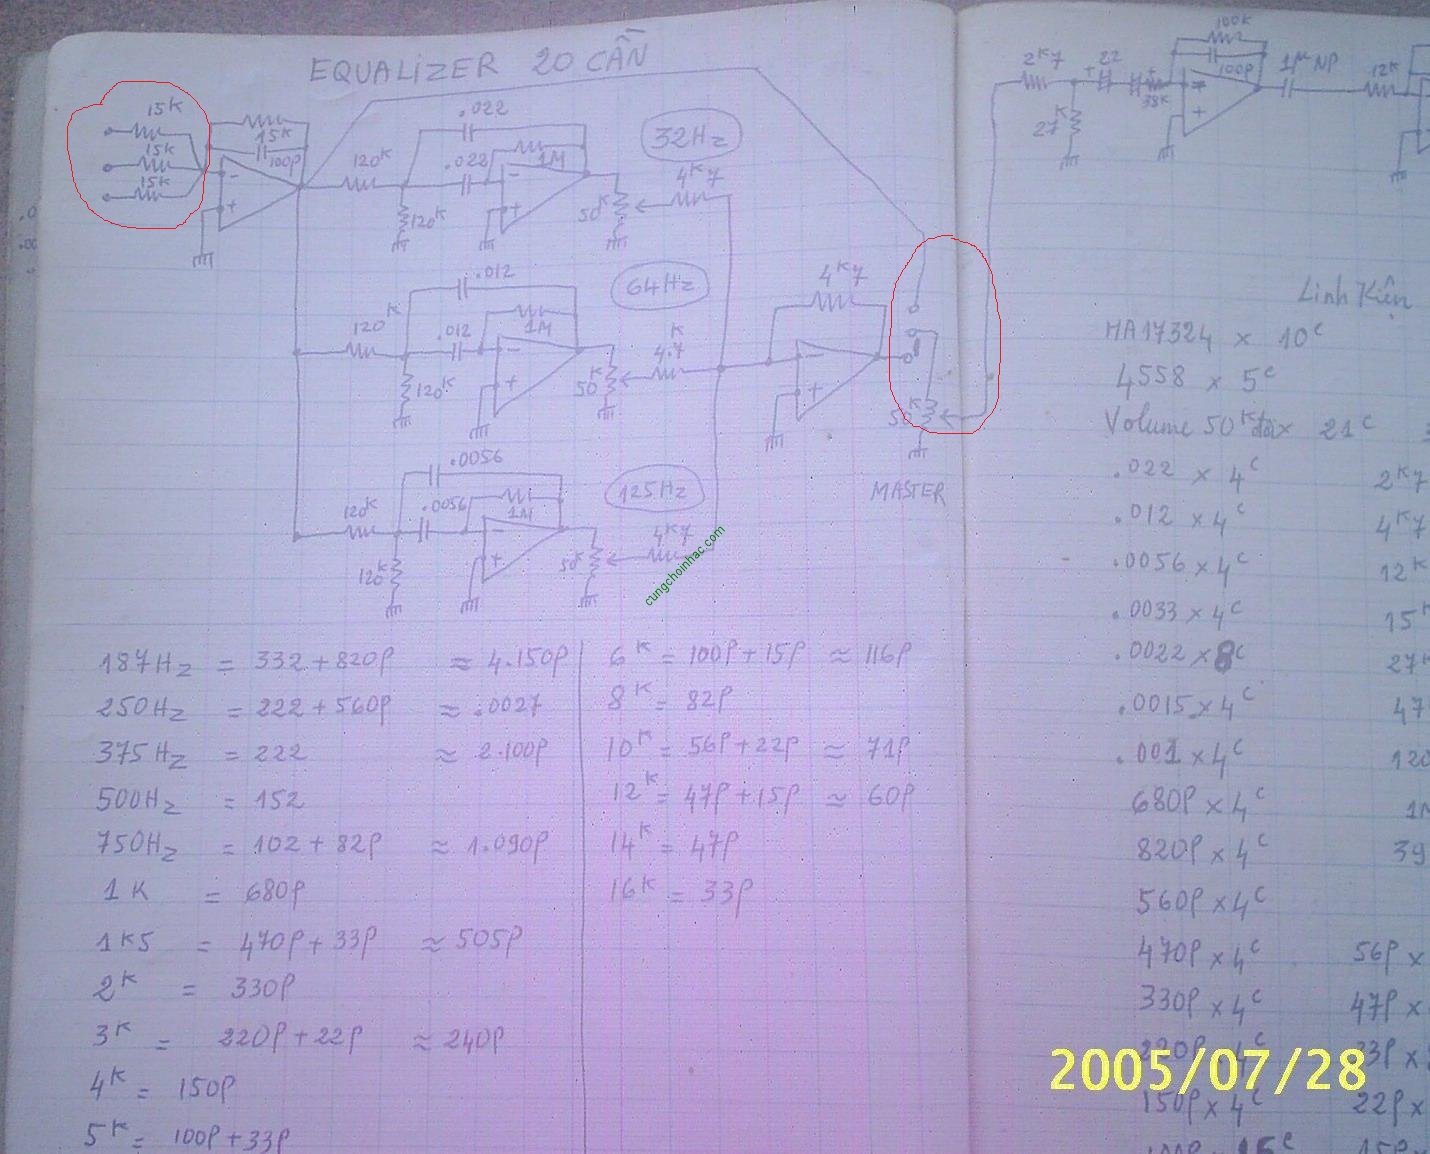 EQUALIZER 20 CẦN
15K
15K
15K
15K
100P
120K
120K
.022
.022
1M
32Hz
50K
4K7
120K
120K
.012
.012
1M
64Hz
50K
4.7K
4K7
50K
MASTER
120K
120K
.0056
.0056
1M
125Hz
50K
4K7
cungchoinhac.com
187Hz = 332 + 820P ≈ 4.150P
250Hz = 222 + 560P ≈ .0027
375Hz = 222 ≈ 2.100P
500Hz = 152
750Hz = 102 + 82P ≈ 1.090P
1K = 680P
1K5 = 470P + 33P ≈ 505P
2K = 330P
3K = 220P + 22P ≈ 240P
4K = 150P
5K = 100P + 33P
6K = 100P + 15P ≈ 116P
8K = 82P
10K = 56P + 22P ≈ 71P
12K = 47P + 15P ≈ 60P
14K = 47P
16K = 33P
2K7
27K
22
38K
100K
100P
1µ NP
12K
Linh Kiện
HA17324 x 10C
4558 x 5C
Volume 50K x 21C
.022 x 4C 2K7
.012 x 4C 4K7
.0056 x 4C 12K
.0033 x 4C 15K
.0022 x 8C 27K
.0015 x 4C 47
.001 x 4C 120
680P x 4C 1M
820P x 4C 39
560P x 4C
470P x 4C 56P x
330P x 4C 47P x
220P x 4C 33P x
150P x 4C 22P x
2005/07/28